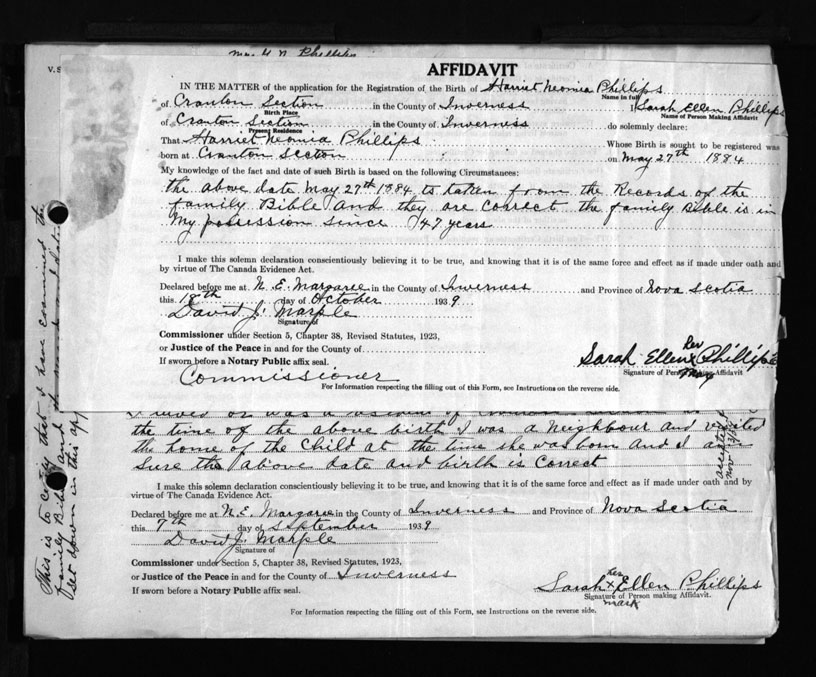 Mrs. H N Phillips
V.S
AFFIDAVIT
IN THE MATTER of the application for the Registration of the Birth of Harriet Neomia Phillips
Name in full
of Cranton Section in the County of Inverness I Sarah Ellen Phillips
Birth Place
Name of Person Making Affidavit
of Cranton Section in the County of Inverness do solemnly declare:
Present Residence
That Harriet Neomia Phillips Whose Birth is sought to be registered was
born at Cranton Section on May 27th 1884
My knowledge of the fact and date of such Birth is based on the following Circumstances:
the above date May 27th 1884 is taken from the Records of the
family Bible and they are correct the family Bible is in
My possession since 47 years
I make this solemn declaration conscientiously believing it to be true, and knowing that it is of the same force and effect as if made under oath and
by virtue of The Canada Evidence Act.
Declared before me at N. E. Margaree in the County of Inverness and Province of Nova Scotia
this 18th day of October 1939
David J. Marple
Signature of
Commissioner under Section 5, Chapter 38, Revised Statutes, 1923,
or Justice of the Peace in and for the County of
If sworn before a Notary Public affix seal.
Commissioner
Sarah Ellen her x Phillips
Signature of Person making Affidavit
For Information respecting the filling out of this Form, see Instructions on the reverse side.
the time of the above birth I was a Neighbour and visited
the home of the Child at the time she was born and I am
Sure the above date and birth is Correct
I make this solemn declaration conscientiously believing it to be true, and knowing that it is of the same force and effect as if made under oath and by
virtue of The Canada Evidence Act.
Declared before me at N.E. Margaree in the County of Inverness and Province of Nova Scotia
this 7th day of September 1939
David J. Marple
Signature of
Commissioner under Section 5, Chapter 38, Revised Statutes, 1923,
or Justice of the Peace in and for the County of Inverness
If sworn before a Notary Public affix seal.
her
Sarah x Ellen Phillips
Signature of Person making Affidavit.
mark
For Information respecting the filling out of this Form, see Instructions on the reverse side.
This is to certify that I have examined the
family Bible and
set down in this
accepted
Nov